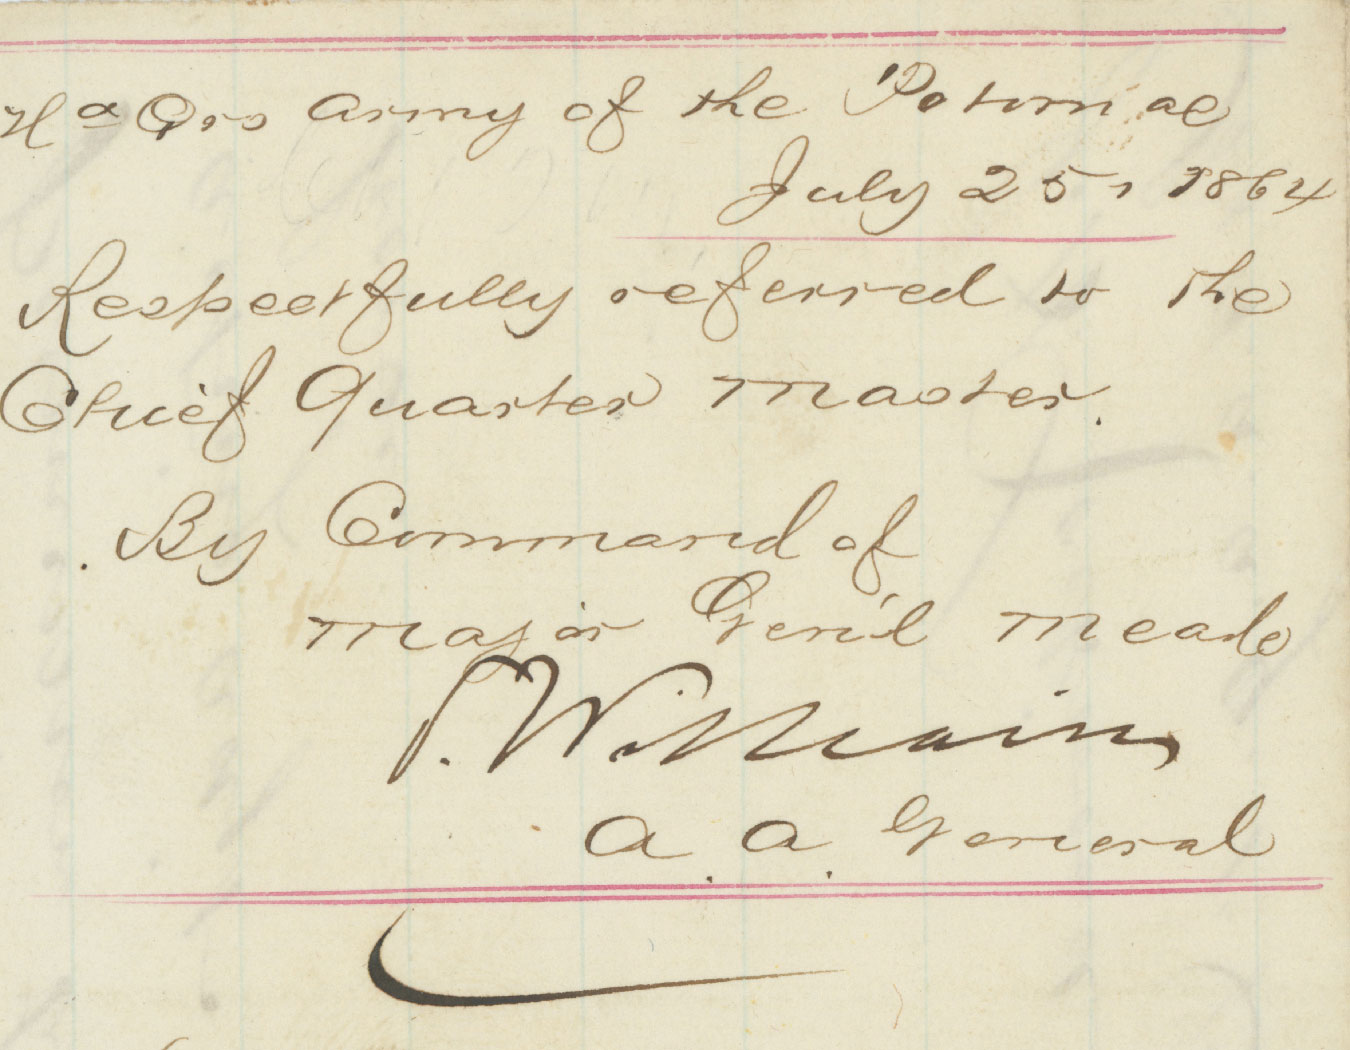 Hd Qrs Army of the Potomac
July 25, 1864
Respectfully referred to the
Chief Quarter Master.
By Command of
Major Gen'l Meade
S. Williams
A. A. General